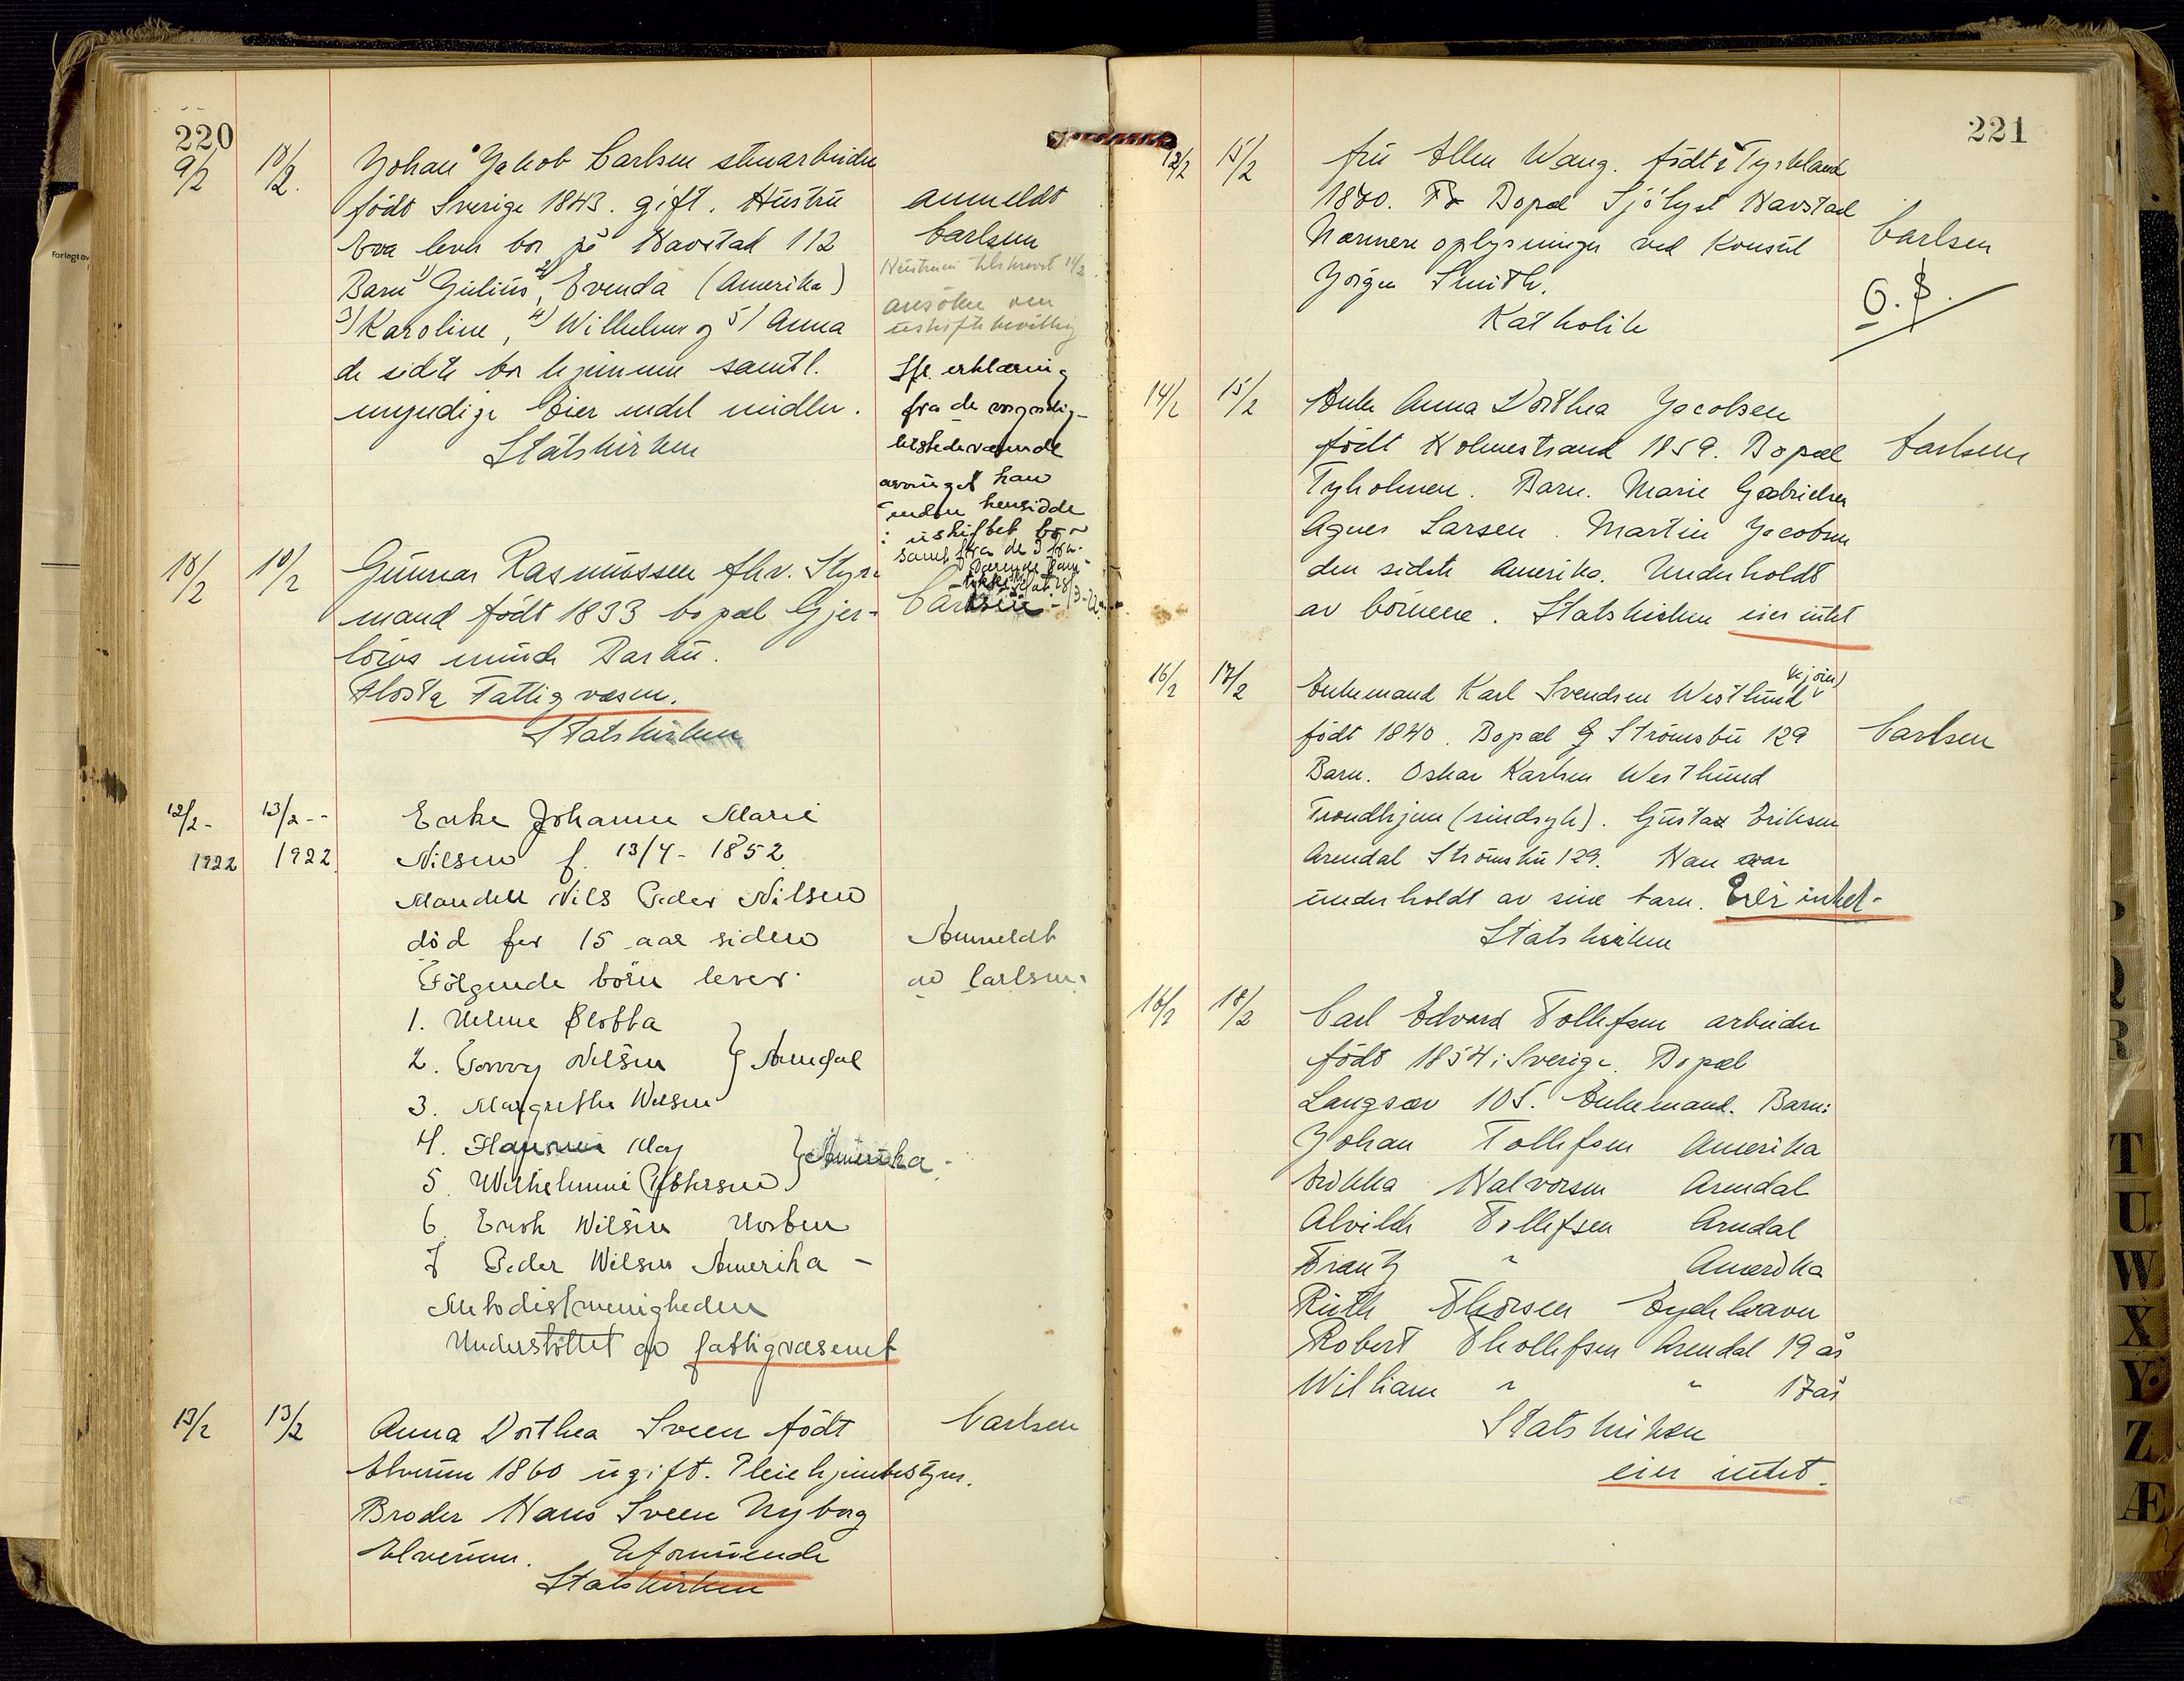 220
9/2 10/2. Johan Jakob Carlsen stenarbeider
født Sverige 1843. gift. Hustru
Eva lever bor på Havstad 112
Barn 1) Gulius, 2) Evenda (Amerika)
3) Karoline, 4) Wilhelm og 5) Anna
de sidste bor hjemme samtl.
umyndige Eier endel midler.
Statskirken
anmeldt
Carlsen
Hustruen tilskrevet 14/2
ansøker om
uskiftebevilling
erklæring
fra de myndig-
arvinger
uskiftet bo
samt fra de 2
10/2 10/2 Gunnar Rasmussen fhv. Styr-
mand født 1833 bopæl Gjer-
løws minde Barbu.
Flosta Fattigvæsen.
Statskirken
Carlsen
12/2 - 13/2 -- Enke Johanne Marie
1922 1922 Nilsen f. 13/4 - 1852
Manden Nils Peder Nilsen
død for 15 aar siden
Følgende børn lever.
Anmeldt
av Carlsen.
1. Helene
2. Nilsen } Arendal
3. Margrethe Nilsen
4. May } Amerika -
5. Wilhelmine
6. Nilsen
7 Peder Nilsen Amerika -
Metodistmenigheden
Understøttet av fattigvæsenet
13/2 13/2 Anna Dorthea Sveen født
Elverum 1860 ugift. Pleiehjemsbestyrer.
Broder Hans Sveen Nyborg
Elverum. Uformuende
Statskirken
Carlsen
221
13/2 15/2 fru Ellen Wang. født i Tyskland
1870. Bopæl Sjølyst Havstad
Nærmere oplysninger ved Konsul
Jørgen Smith.
Katholik
Carlsen
O. S.
14/2 15/2 Enke Anna Dorthea Jacobsen
født Holmestrand 1859. Bopæl
Tyholmen. Barn. Marie Gabrielsen
Agnes Larsen. Martin Jacobsen
den sidste Amerika. Underholdt
av børnene. Statskirken eier intet
Carlsen
16/2 17/2 Enkemand Karl Svendsen Westlund
født 1840. Bopæl G Strømsbu 129
Barn. Oskar Karlsen Westlund
Trondhjem (sindsyk). Gustav Eriksen
Arendal Strømsbu 129. Han var
underholdt av sine barn. Eier intet -
Statskirken
Carlsen
16/2 18/2 Carl Edvard Tollefsen arbeider
født 1854 i Sverige. Bopæl
Langsæv 105. Enkemand. Barn:
Johan Tollefsen Amerika
Halvorsen Arendal
Alvilde Tollefsen Arendal
Frantz " Amerika
Ruth Thorsen Eydehavn
Robert Thollefsen Arendal 19 år
William " " 17 år
Statskirken
eier intet.
P
Q
R
T
U
W
X
Y
Z
Æ